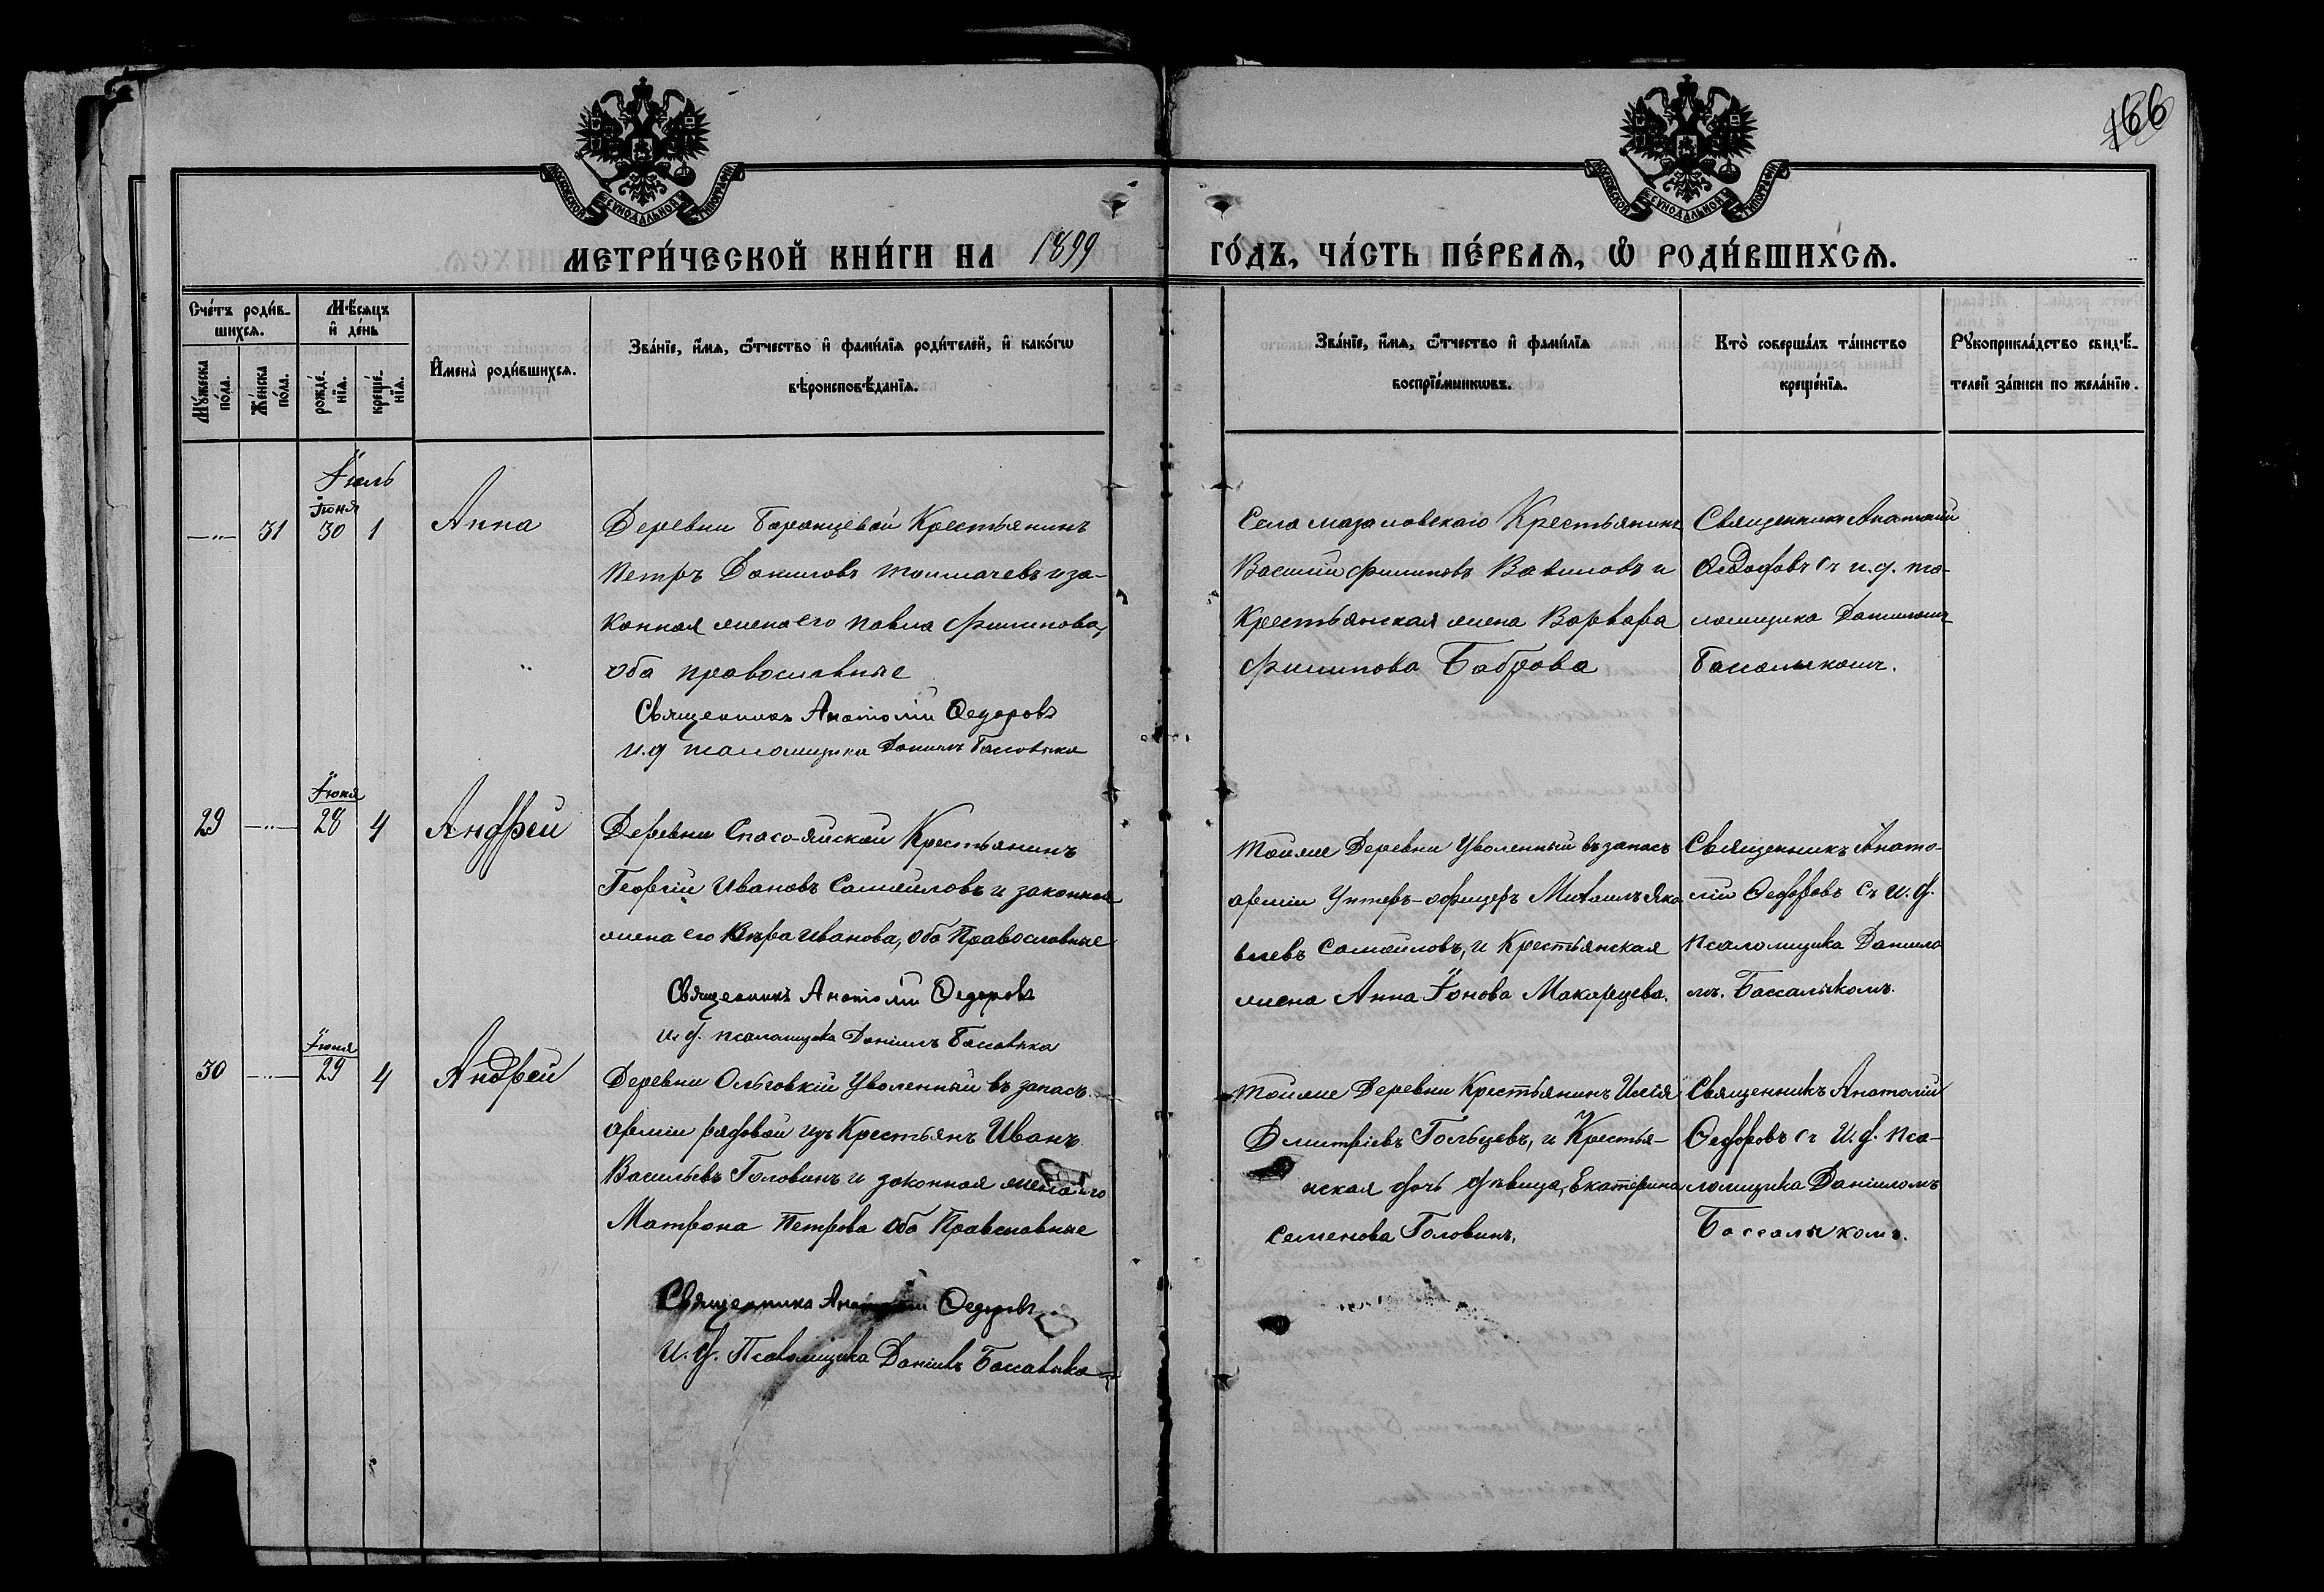 166
МОСКОВСКОЙ СѴНОДАЛЬНОЙ ТИПОГРАФІИ
МОСКОВСКОЙ СѴНОДАЛЬНОЙ ТИПОГРАФІИ
МЕТРИ́ЧЕСКОЙ КНИ́ГИ НА 1899 ГО́ДЪ, ЧА́СТЬ ПЕ́РВАѦ, Ѡ҆ РОДИ́ВШИХСѦ.
Сче́тъ роди́в-
шихсѧ.
Мꙋ́жеска по́ла.
Же́нска по́ла.
Мѣ́сѧцъ
и҆ де́нь
рожде́-
нїѧ.
креще́-
нїѧ.
И҆мена̀ роди́вшихсѧ.
Зва́нїе, и҆́мѧ, ѻ҆́тчество и҆ фами́лїѧ роди́телей, и҆ како́гѡ
вѣроисповѣ́данїѧ.
Зва́нїе, и҆́мѧ, ѻ҆́тчество и҆ фами́лїѧ
воспрїе́мникѡвъ.
Кто̀ соверша́лъ та́инство
креще́нїѧ.
Рꙋкоприкла́дство свидѣ́-
телей за́писи по жела́нїю.
Іюль
Іюня
—„— 31 30 1 Анна
Деревни Баранцевой Крестьянинъ
Петръ Даниловъ Толмачевъ и за-
конная жена его Павла Филипова,
оба православные
Священникъ Анатолій Ѳедоровъ
И.д псаломщика Даніилъ Бассалыка
Села Мазаловскаго Крестьянинъ
Василій Филиповъ Вавиловъ и
Крестьянская жена Варвара
Филипова Баброва
Священникъ Анатолій
Ѳедоровъ съ и.д. пса-
ломщика Даниломъ
Бассалыкомъ.
Іюня
29 —„— 28 4 Андрей
Деревни Спасо-Яйской Крестьянинъ
Георгій Ивановъ Самойловъ и законная
жена его Вѣра Иванова, оба Православные
Священникъ Анатолій Ѳедоровъ
и. д. псаломщика Даніилъ Бассалыка
Тойже Деревни Уволенный въ запасъ
арміи Унтеръ-офицеръ Михаилъ Яко
влевъ Самойловъ, и Крестьянская
жена Анна Іонова Макарцева.
Священникъ Анато-
лій Ѳедоровъ съ И. д.
Псаломщика Данило
мъ. Бассалыкомъ.
Іюня
30 —„— 29 4 Андрей
Деревни Ольговкій Уволенный въ запасъ
арміи рядовой изъ Крестьянъ Иванъ
Васильевъ Головинъ и законная жена его
Матрона Петрова оба Православные
Священника Анатолій Ѳедоровъ
И. д. Псаломщика Даніилъ Бассалыка
Тойже Деревни Крестьянинъ Илія
Дмитріевъ Гольцевъ, и Крестья-
нская дочь дѣвица, Екатерина
Семенова Головинъ,
Священникъ Анатолій
Ѳедоровъ съ И. д. Пса-
ломщика Даніиломъ
Бассалыкомъ.